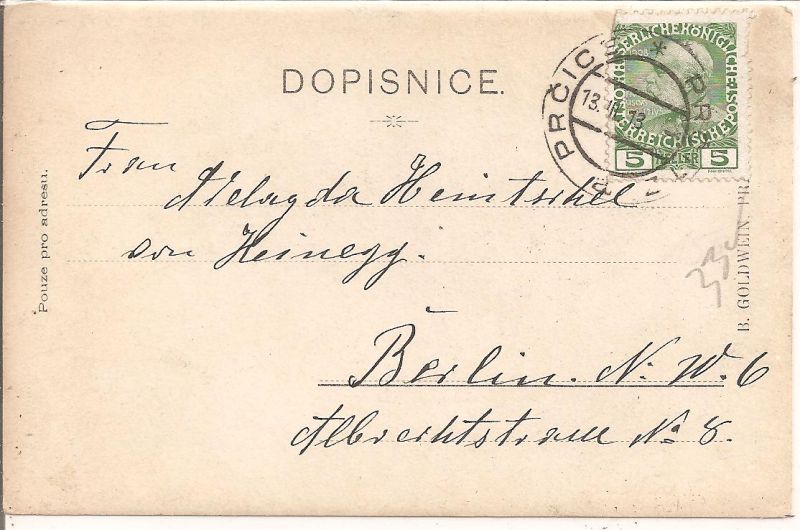 DOPISNICE.
PRČICE
13.III.13
KAISERLICHE KÖNIGLICHE
ÖSTERREICHISCHE POST
5 HELLER 5
Frau Melagda Heintschel
von Heinegg.
Berlin. N. W. 6
Albrechtstrasse No 8.
Pouze pro adresu.
B. GOLDWEIN, PR